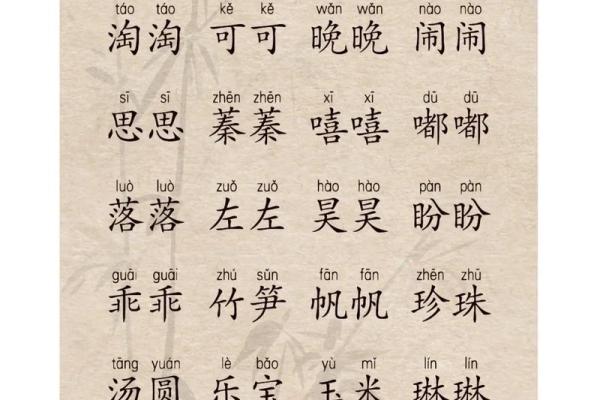 táo táo kě kě wǎn wǎn nào nào
淘淘 可可 晚晚 闹闹
sī sī zhēn zhēn xī xī dū dū
思思 蓁蓁 嘻嘻 嘟嘟
luò luò zuǒ zuǒ hào hào pàn pàn
落落 左左 昊昊 盼盼
guāi guāi zhú sǔn fān fān zhēn zhū
乖乖 竹笋 帆帆 珍珠
tāng yuán lè bǎo yù mǐ lín lín
汤圆 乐宝 玉米 琳琳